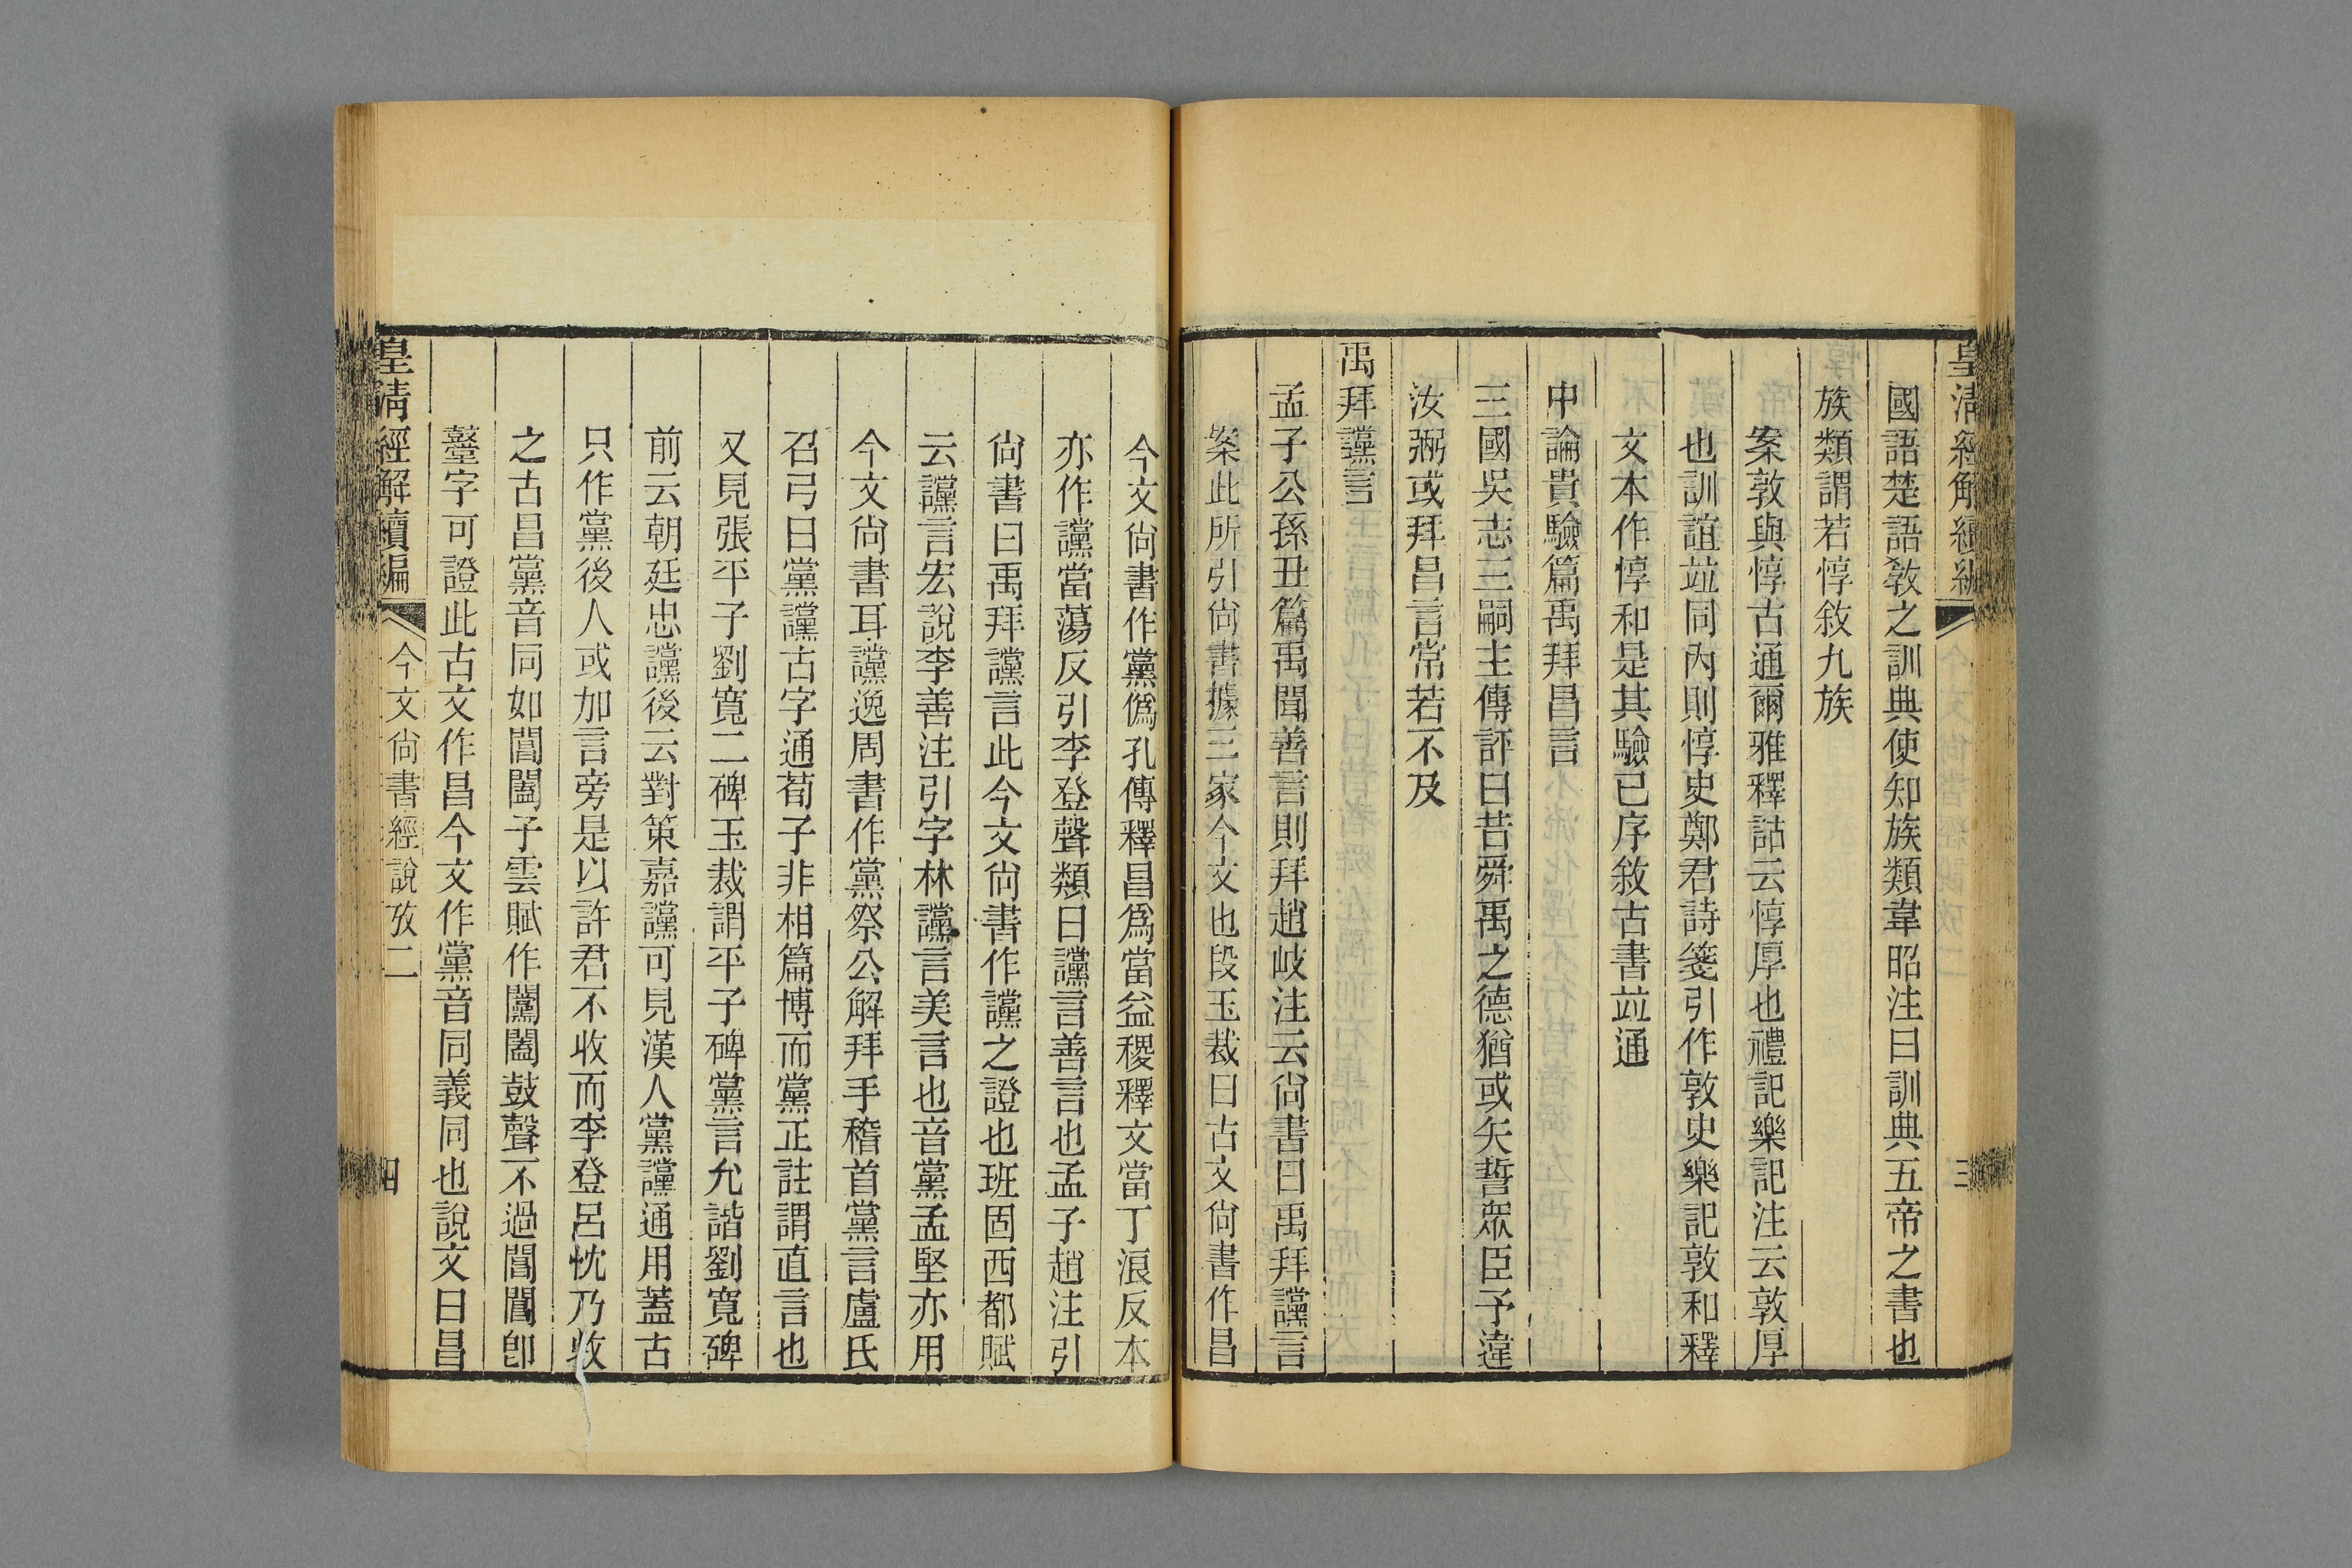 皇清經解續編
三
國語楚語敎之訓典使知族類韋昭注曰訓典五帝之書也
族類謂若惇敘九族
案敦與惇古通爾雅釋詁云惇厚也禮記樂記注云敦厚
也訓誼竝同內則惇史鄭君詩箋引作敦史樂記敦和釋
文本作惇和是其驗已序敘古書竝通
中論貴驗篇禹拜昌言
三國吳志三嗣主傳評曰昔舜禹之德猶或矢誓眾臣予違
汝弼或拜昌言常若不及
禹拜讜言
孟子公孫丑篇禹聞善言則拜趙岐注云尙書曰禹拜讜言
案此所引尙書據三家今文也段玉裁曰古文尙書作昌
今文尙書作黨僞孔傳釋昌爲當益稷釋文當丁浪反本
亦作讜當蕩反引李登聲類曰讜言善言也孟子趙注引
尙書曰禹拜讜言此今文尙書作讜之證也班固西都賦
云讜言宏說李善注引字林讜言美言也音黨孟堅亦用
今文尙書耳讜逸周書作黨祭公解拜手稽首黨言盧氏
召弓曰黨讜古字通荀子非相篇博而黨正註謂直言也
又見張平子劉寬二碑玉裁謂平子碑黨言允諧劉寬碑
前云朝廷忠讜後云對策嘉讜可見漢人黨讜通用蓋古
只作黨後人或加言旁是以許君不收而李登呂忱乃收
之古昌黨音同如閶闔子雲賦作闛闔鼓聲不過閶閶卽
鼞字可證此古文作昌今文作黨音同義同也說文曰昌
皇清經解續編
今文尙書經說攷二
四